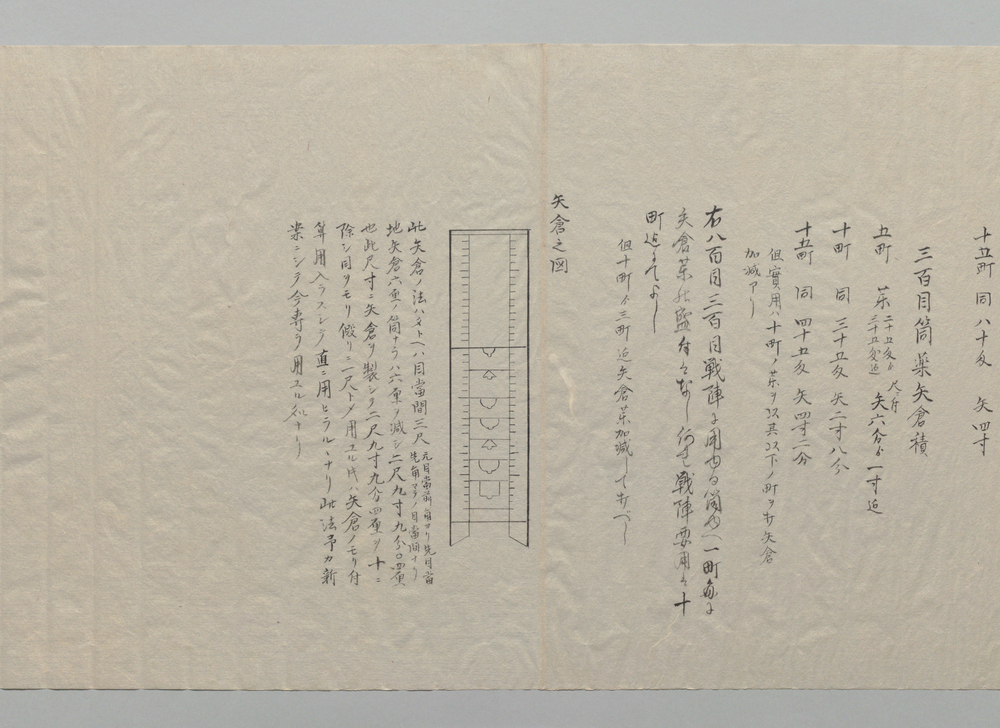 十五町 同 八十匁 矢四寸
三百目筒薬矢倉積
五町 薬 二十五匁ゟ 三十五匁迄 尺ニ付 矢六分ゟ一寸迄
十町 同 三十五匁 矢二寸八分
十五町 同 四十五匁 矢四寸二分
但實用ハ十町ノ薬ヲ以其以下ノ町ヲ打矢倉
加減アリ
右八百目三百目戦陣に用ゆる筒ゆへ一町毎に
矢倉薬 戦陣要用々十
町迄にてよし
但十町ゟ三町迄矢倉薬加減して打べし
矢倉之図
此矢倉ノ法ハタトヘハ目當間三尺 元目當前角ヨリ先目當 先角マテノ目當間ナリ
地矢倉六厘ノ筒ナラハ六厘ヲ減シ二尺九寸九分〇四厘
也此尺寸ニ矢倉ヲ製シテ二尺九寸九分四厘ヲ十ニ
除シ同ヲモリ假リニ一尺トメ用ユル時ハ矢倉ノモリ付
算用入ラスシテ直ニ用ヒラルヽナリ此法予カ新
案ニシテ今専ラ用ユル